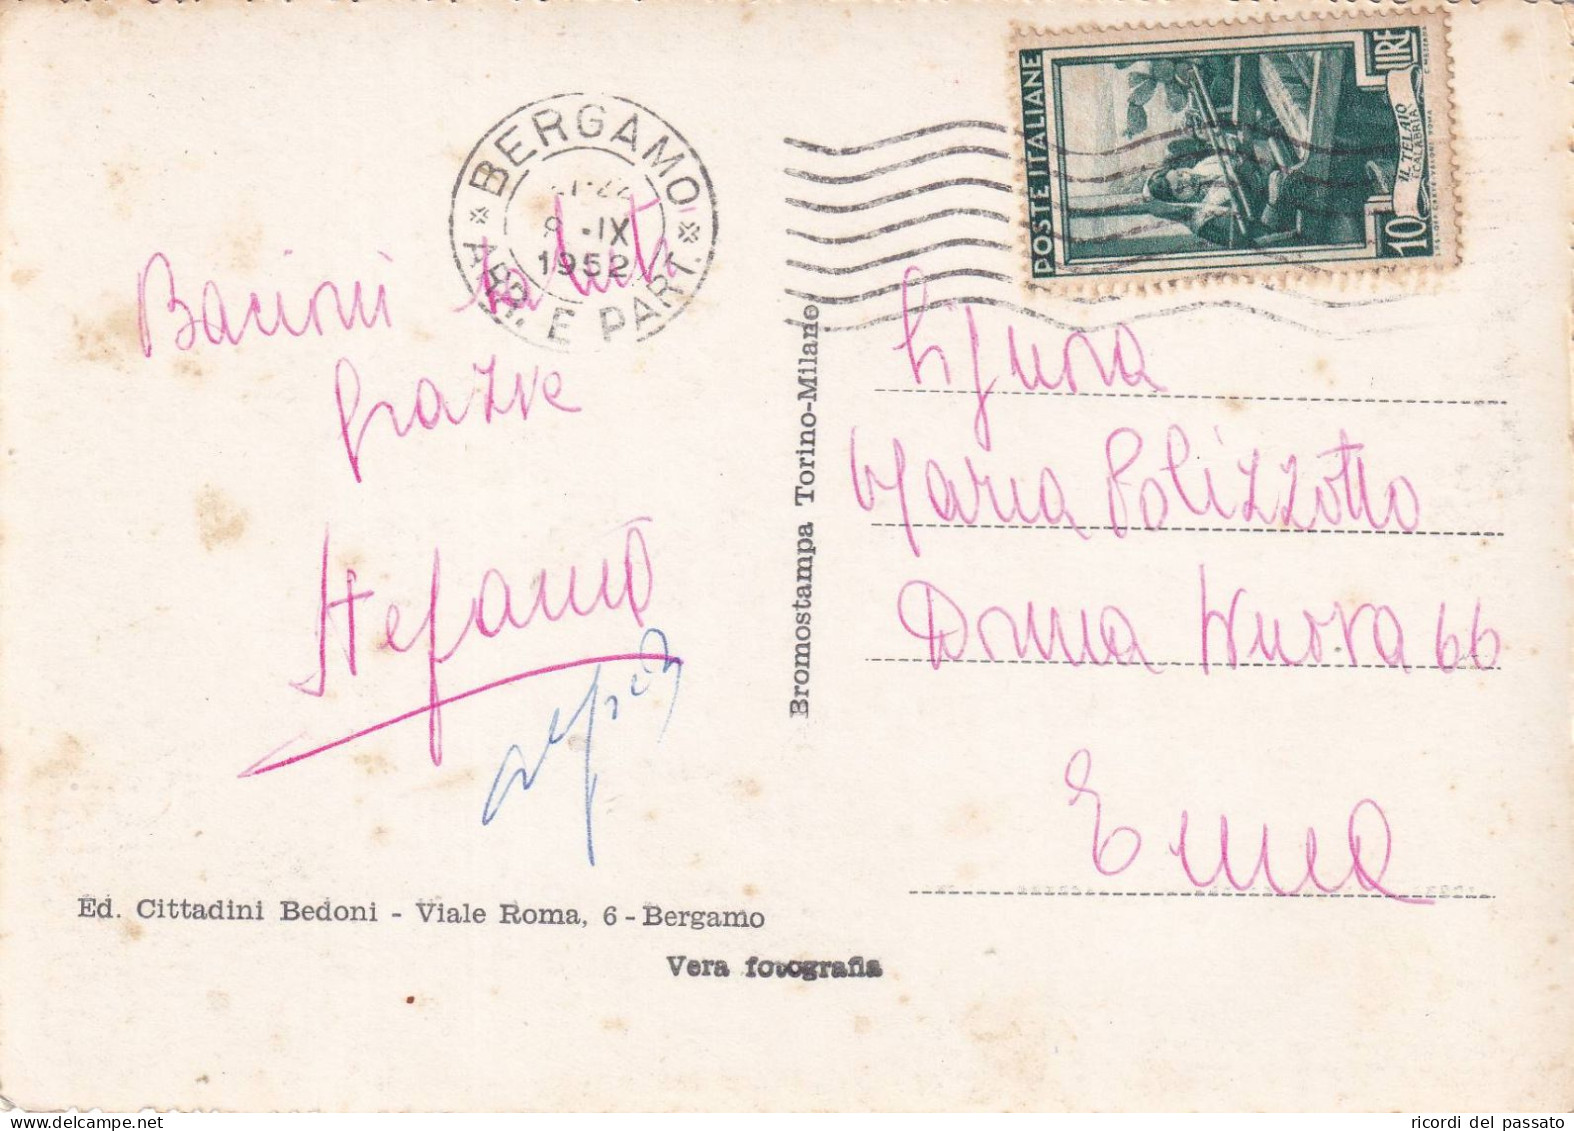 BERGAMO
8 -IX
1952
ARR. E PART.
POSTE ITALIANE
LIRE
10
IL TELAIO
CALABRIA
Bacioni saluti
grazie
Stefano
Signora
Maria Polizzotto
Donna Nuova 66
Enna
Bromostampa Torino-Milano
Ed. Cittadini Bedoni - Viale Roma, 6 - Bergamo
Vera fotografia
ricordi del passato